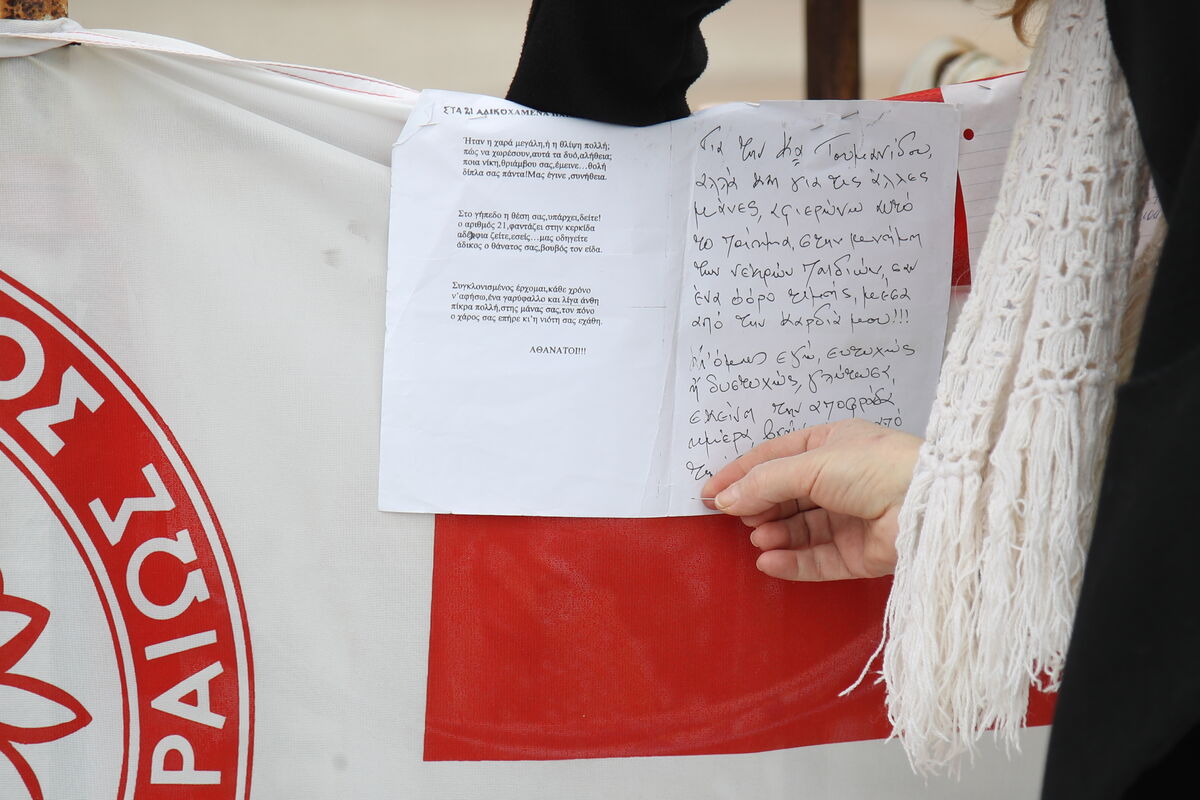 ΣΤΑ 21 ΑΔΙΚΟΧΑΜΕΝΑ
Ήταν η χαρά μεγάλη,ή η θλίψη πολλή;
πώς να χωρέσουν,αυτά τα δυό,αλήθεια;
ποια νίκη,θριάμβου σας,έμεινε…θολή
δίπλα σας πάντα!Μας έγινε ,συνήθεια.
Στο γήπεδο η θέση σας,υπάρχει,δείτε!
ο αριθμός 21,φαντάζει στην κερκίδα
αδέρφια ζείτε,εσείς…μας οδηγείτε
άδικος ο θάνατος σας,βουβός τον είδα.
Συγκλονισμένος έρχομαι,κάθε χρόνο
ν΄αφήσω,ένα γαρύφαλλο και λίγα άνθη
πίκρα πολλή,στης μάνας σας,τον πόνο
ο χάρος σας επήρε κι΄η νιότη σας εχάθη.
ΑΘΑΝΑΤΟΙ!!!
Για την Κα Τουμανίδου,
αλλά και για τις άλλες
μάνες, αφιερώνω αυτό
το ποίημα, στην μνήμη
των νεκρών παιδιών, σαν
ένα φόρο τιμής, μέσα
από την καρδιά μου!!!
Κι' όμως εγώ, ευτυχώς
ή δυστυχώς, γλύτωσα,
εκείνη την αποφράδα
ημέρα, από
ΟΣ
ΡΑΙΩΣ